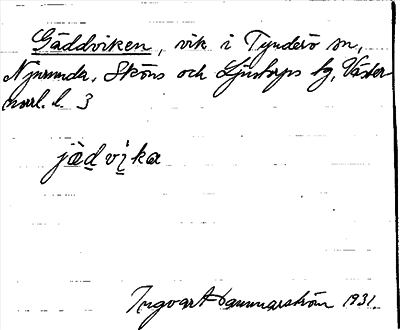 Gäddviken, vik i Tynderö sn,
Njurunda, Sköns och Ljustorps tg, Väster
norrl. l. 3
jädvika
Ingvar Hammarström 1931.